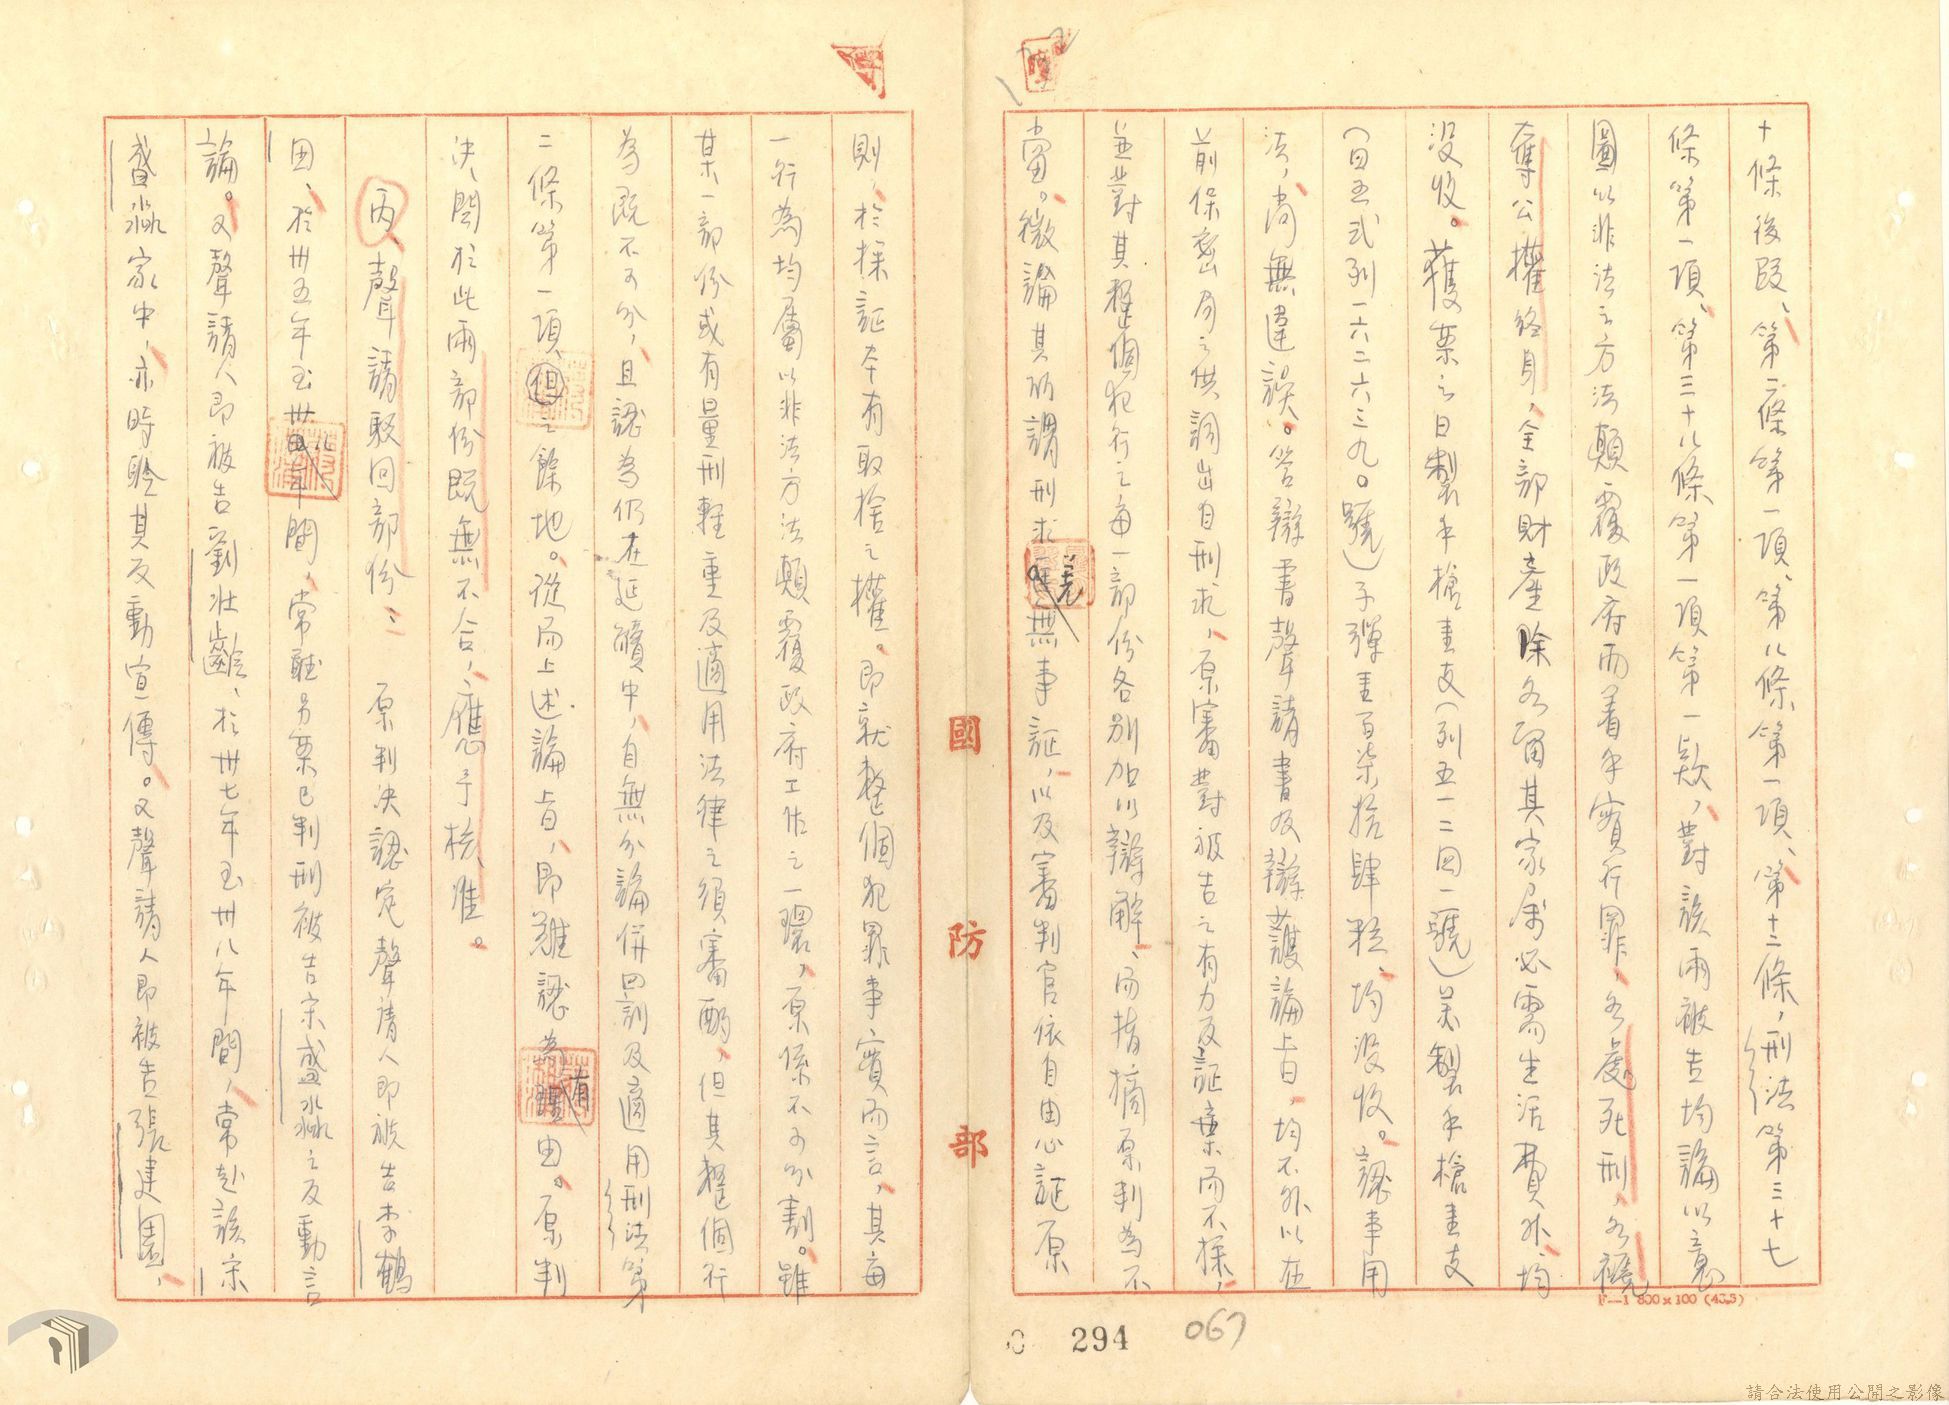 十條後段、第二條第一項、第八條第一項、第十二條，刑法第三十七
條第一項、第三十八條第一項第一款，對該兩被告均論以意
圖以非法之方法顛覆政府而着手實行罪，各處死刑，各褫
奪公權終身，全部財產除各留其家屬必需生活費外，均
沒收。獲案之日製手槍壹支（列五一二四一號）美製手槍壹支
（四五式列一六二六三九。號）子彈壹百柒拾肆粒、均沒收。認事用
法，尚無違誤。答辯書聲請書及辯護論上旨，均不外以在
前保密局之供詞出自刑求，原審對被告之有力反証棄而不採，
並對其整個犯行之每一部份各別加以辯解、而指摘原判為不
當。微論其所謂刑求羌無事証，以及審判官依自由心証原
則，於採証本有取捨之權。即就整個犯罪事實而言，其每
一行為均屬以非法方法顛覆政府工作之一環，原係不可分割。雖
某一部份或有量刑輕重及適用法律之須審酌，但其整個行
為既不可分，且認為仍在延續中，自無分論併罰及適用刑法第
二條第一項但之餘地。從而上述論旨，即難認為有理由。原判
決、關於此兩部份既無不合，應予核准。
丙、聲請駁回部份：原判決認定聲請人即被告李鶴
田、於卅五年至卅八年間，常聽另案已判刑被告宋盛淼之反動言
論。又聲請人即被告劉壯齡、於卅七年至卅八年間，常赴該宋
盛淼家中，亦時聆其反動宣傳。又聲請人即被告張建園，
國防部
F—1 800×100 (43.3)
294
067
請合法使用公開之影像